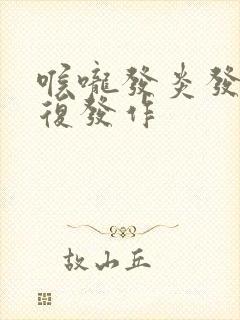 喉嚨發炎發
復發作
故山丘